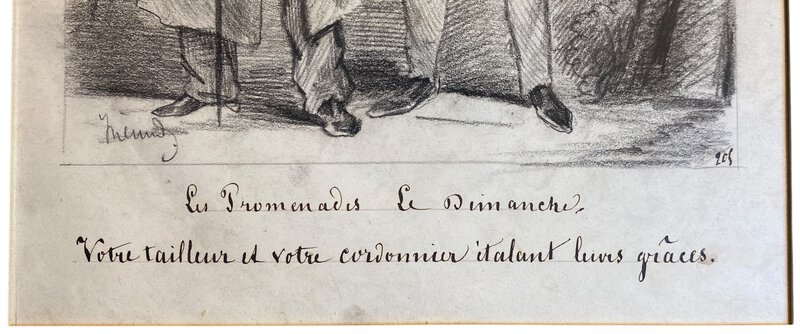 205
Les Promenades Le Dimanche.
Votre tailleur et votre cordonnier étalant leurs grâces.